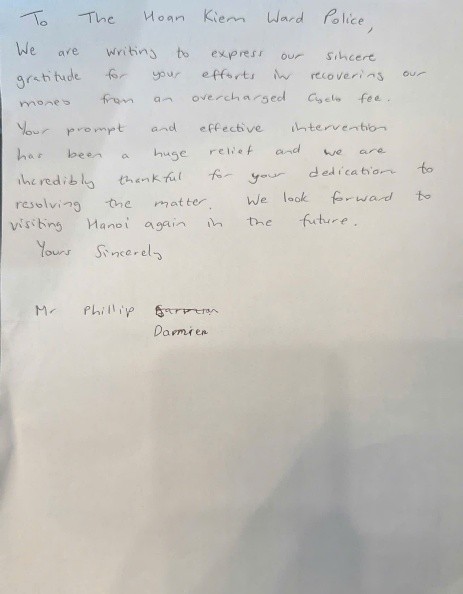 To The Hoan Kiem Ward Police,
We are writing to express our sincere
gratitude for your efforts in recovering our
money from an overcharged Cyclo fee.
Your prompt and effective intervention
has been a huge relief and we are
incredibly thankful for your dedication to
resolving the matter. We look forward to
visiting Hanoi again in the future.
Yours Sincerely
Mr Phillip
Darmien